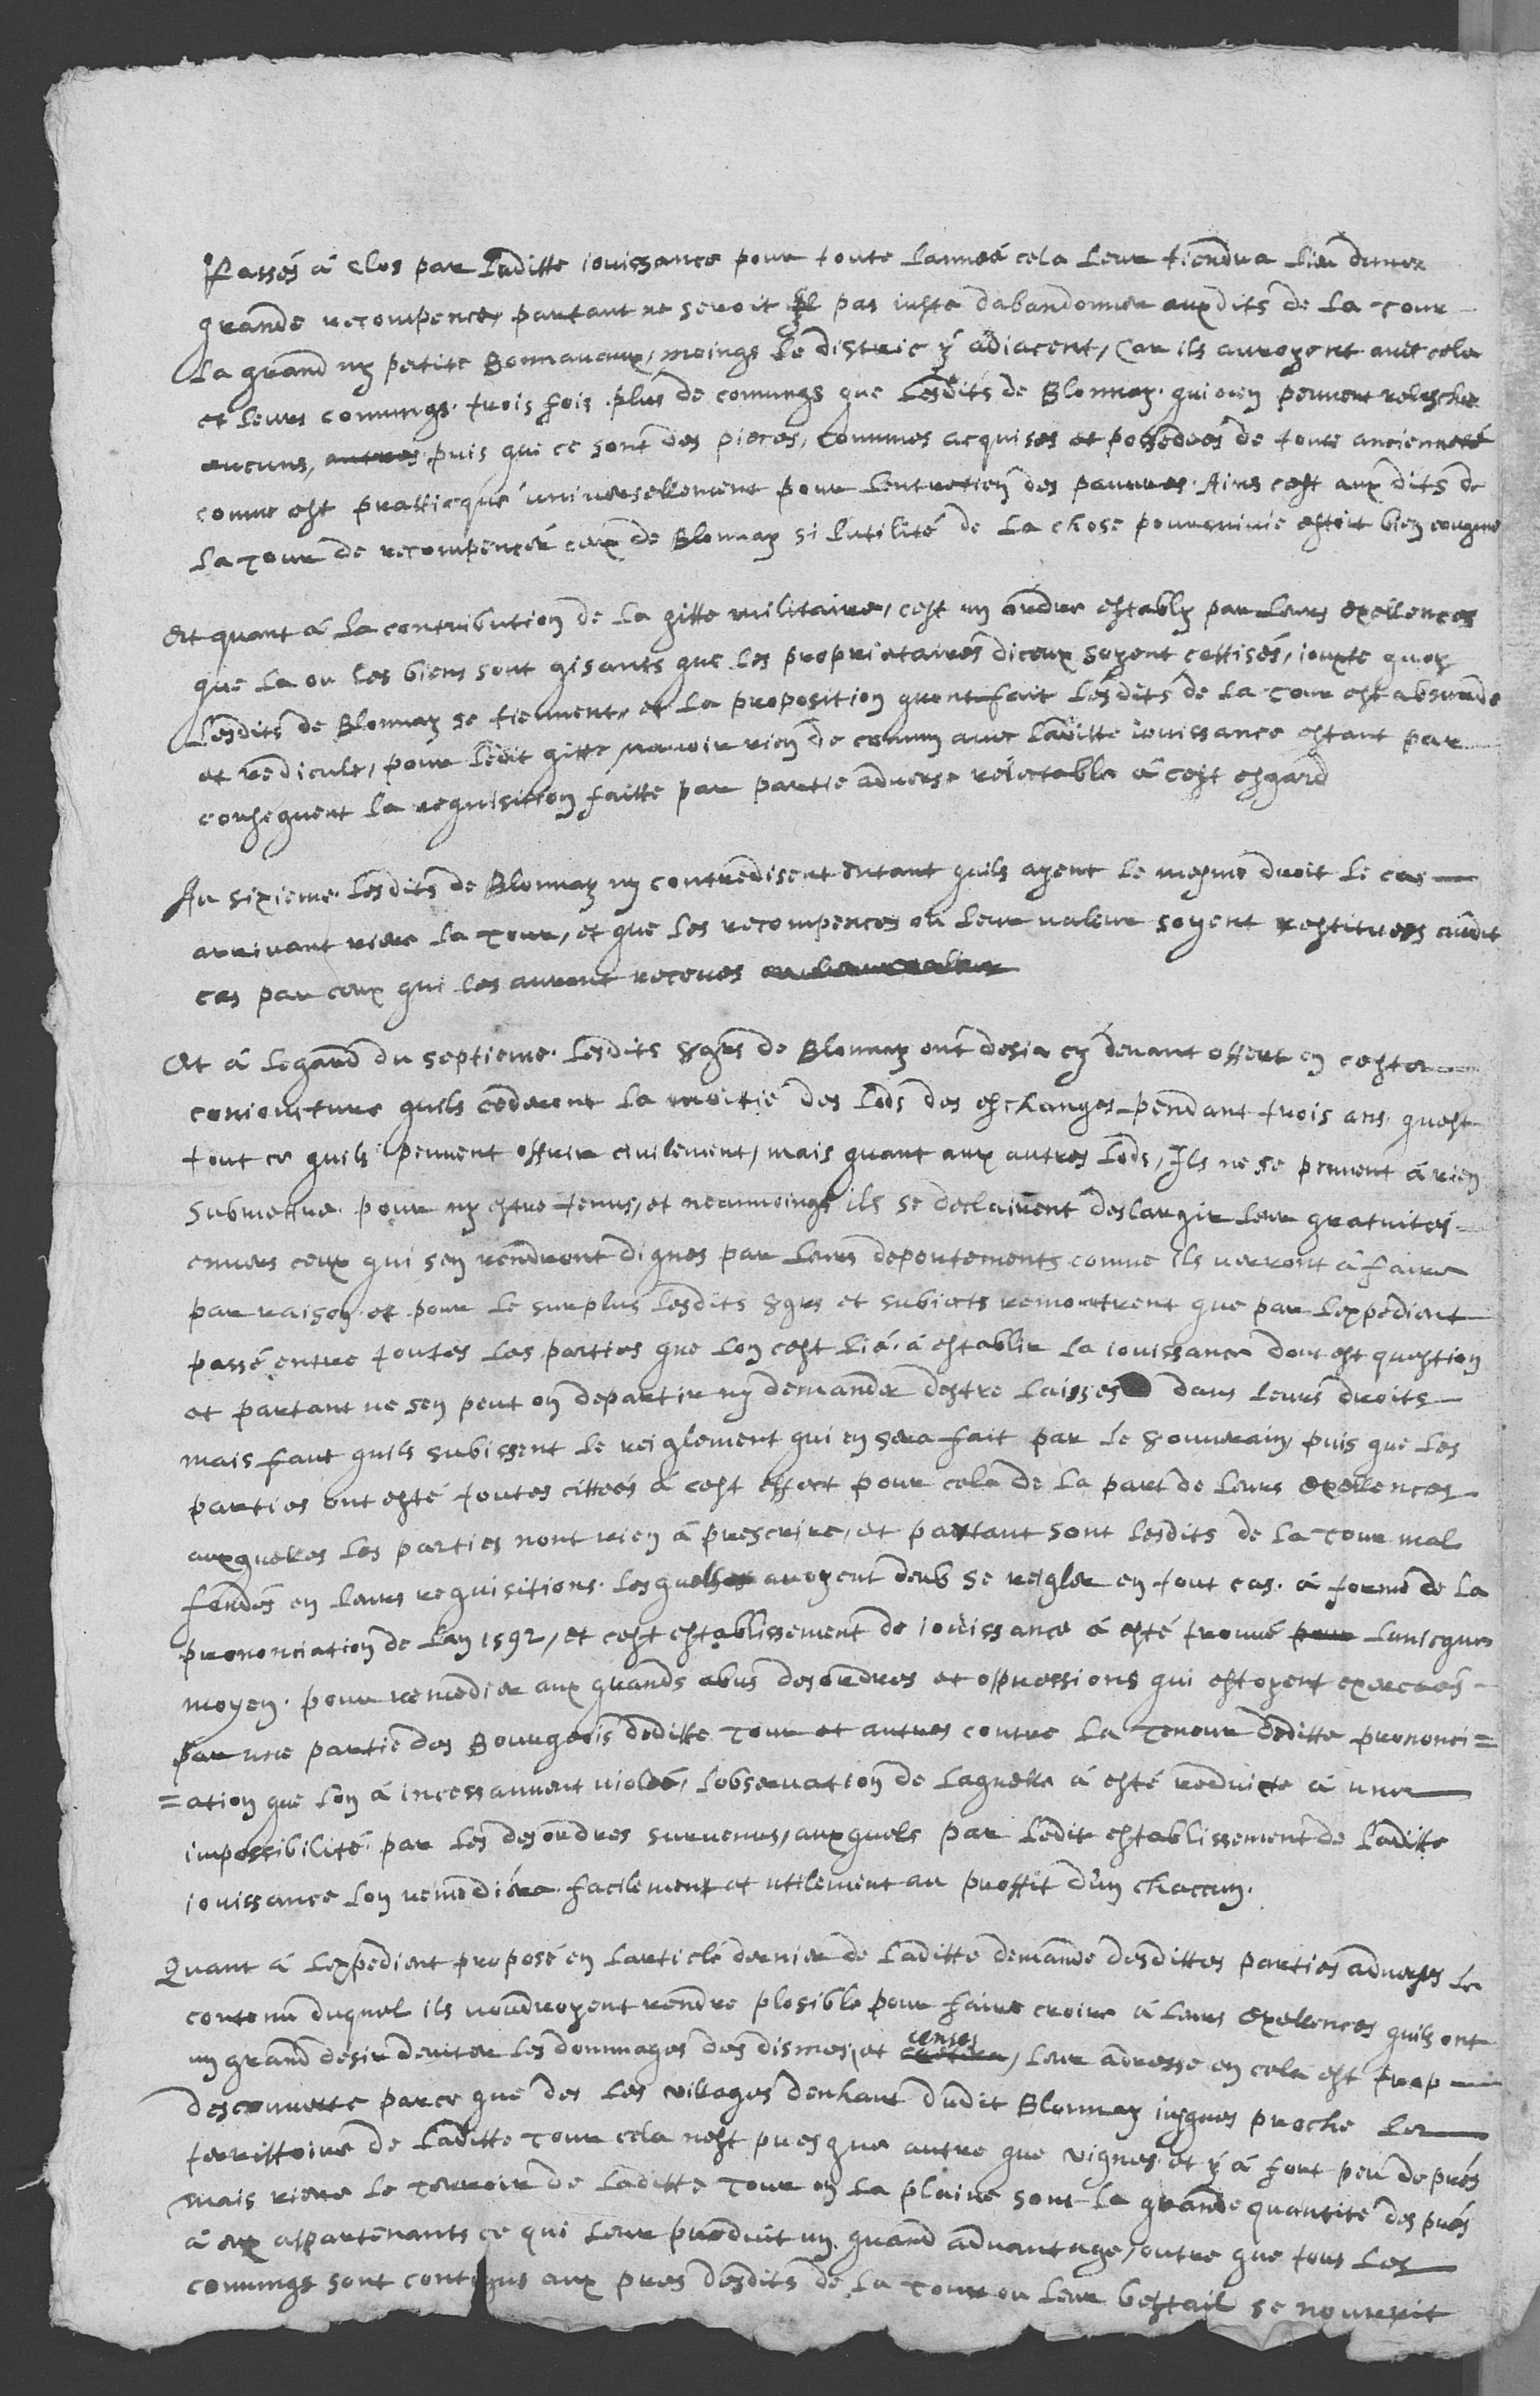 Passés à clos par laditte iouissance pour toute lanneé cela leur tiendra lieu dune
grande recompence, partant ne seroit pas iuste dabandonner auxdits de la Tour
la grand ny petite Bonnavaux, moings le distric ÿ adiacent, Car ils auroyent avec cela
et leurs comungs trois fois plus de comungs que lesdits de Blonnay qui nen peuvent relascher
aucuns, autres puis que ce sont des pieces, communes acquises et possedées de toute ancienneté
comme est practicqué universellement pour lentretien des pauvres. Ains cest aux dits de
la Tour de recompencer ceux de Blonnay si lutilité de la chose poursuivie estoit bien congnue
Et quant à la contribution de la gitte militaire, cest un ordre establÿ par leurs Exellences
que la ou les biens sont gisants que les proprietaires diceux soyent cottisés, iouxte quoy
lesdits de Blonnay se tiennent, et la proposition quont fait lesdits de la Tour est absurde
et redicule, pour ledit gitte navoir rien de comun avec laditte iouissance estant par
conseqvent la requisition faitte par partie adverse reiectable à cest esgard
Au sixieme lesdits de Blonnay nÿ contredisent Entant quils ayent le mesme droit le cas
arrivant riere la Tour, et que les recompences ou leur valeur soyent restitueés audit
cas par ceux qui les auront receues ou leur valeur
Et à legard du septieme. lesdits Sgrs de Blonnay ont desia cÿ devant offert en ceste
conioncture quils cederont la moitié des lods des eschanges pendant trois ans quest
tout ce quils peuvent offrir civilement, mais quant aux autres lods, Ils ne se peuvent à rien
submettre pour nÿ estre tenus, et neanmoings ils se declairent deslargir leur gratuités
envers ceux qui sen rendront dignes par leurs deportements comme ils verront à faire
par raison et pour le surplus lesdits Sgrs et subiects remontrent que par lexpedient
passé entre toutes les parties que lon cest lié à establir la iouissance dont est question
et partant ne sen peut on departir nÿ demander destre laissés dans leurs droits
mais faut quils subissent le reiglement qui en sera fait par le Souverain puis que les
parties ont esté toutes citteés à cest effect pour cela de la part de leurs Exellences
auxquelles les parties nont rien à prescrire, et partant sont lesdits de la Tour mal
fondés en leurs requisitions. lesquelles avoyent deub se reigler en tout cas. à forme de la
prononciation de lan 1592, et cest establissement de iouissance à esté trouvé pour lunicque
moyen. pour remedier aux grands abus desordres et opressions qui estoyent exerceés
par une partie des Bourgeois deditte Tour et autres contre la Teneur deditte prononci=
=ation que lon à incessamment violeé, lobservation de laquelle à esté reduitte à une
impossibilité par les desordres survenus, auxquels par ledit establissement de laditte
iouissance lon remediéra facilement et utilement au proffit dun chacun.
Quant à lexpedient proposé en larticle dernier de laditte demande desdittes parties adverses le
contenu duquel ils voudroyent rendre plosible pour faire croire à leurs Exellences quils ont
un grand desir deviter les dommages des dismes, et censes, leur adresse en cela est trop
descouverte parce que des les villages denhaut dudit Blonnay iusques proche le
territtoire de laditte Tour cela nest presque autre que vignes et ÿ à fort peu de prés
mais riere le Terroir de laditte Tour en la plaine sont la grande quantité des prés
à eux apartenants ce qui leur produit un grand advantage, outre que tous les
comungs sont contigus aux pres desdits de la Tour ou leur bestail se nourrit